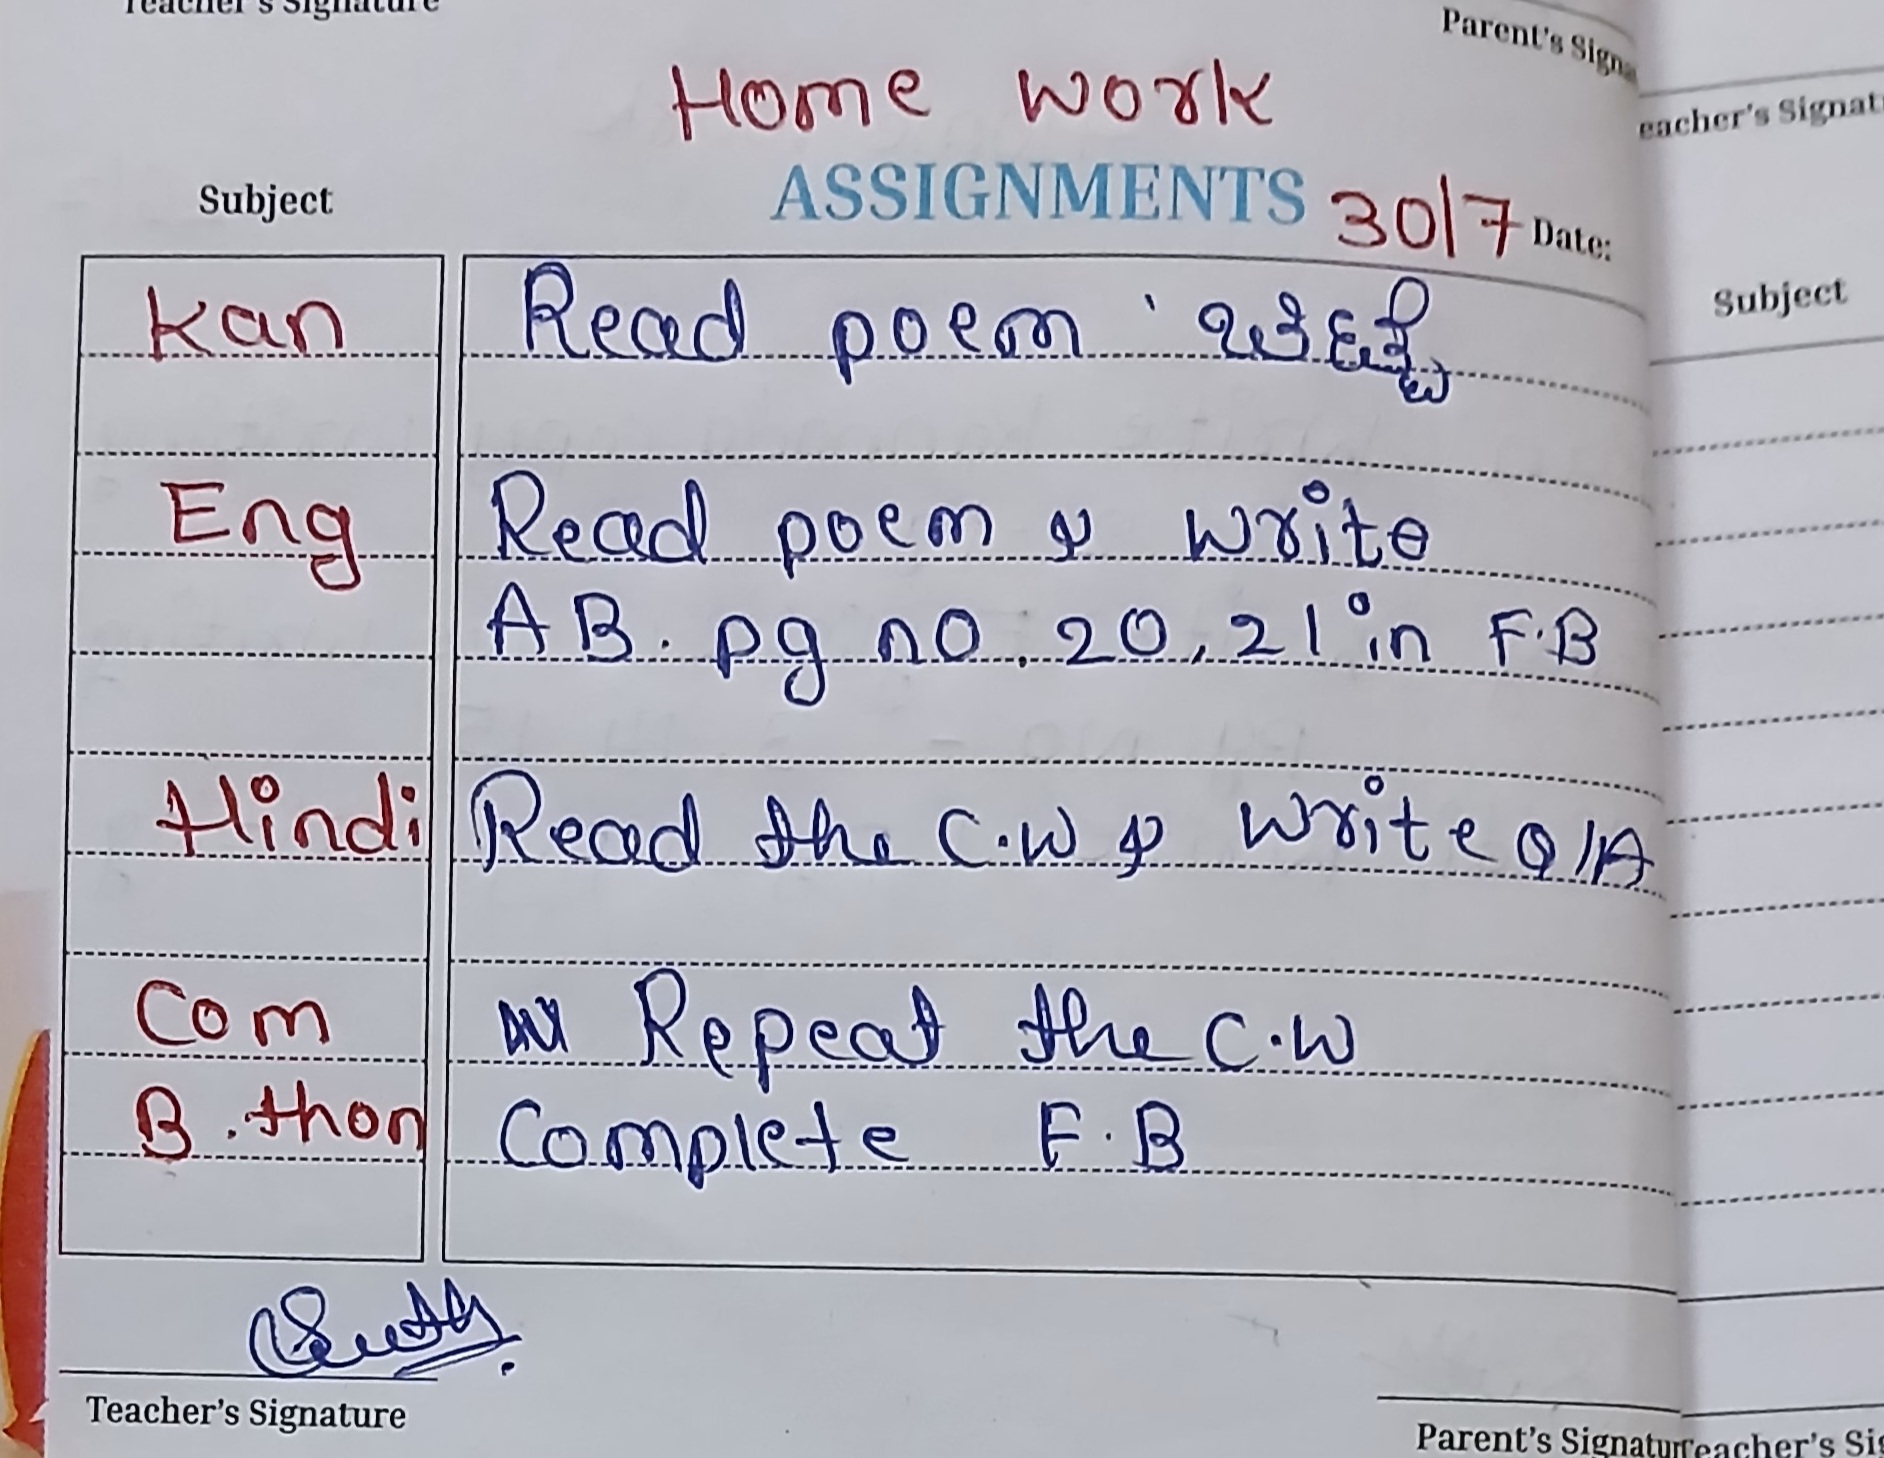 Teacher's Signature
Parent's Signa
eacher's Signat
Home work
Subject ASSIGNMENTS 30/7 Date:
Subject
Kan Read poem '
Eng Read poem & write
AB. pg no. 20, 21 in F.B
Hindi Read the C.W & write Q/A
Com Repeat the C.W
B.thon Complete F.B
Teacher's Signature
Parent's Signatur
eacher's Sig